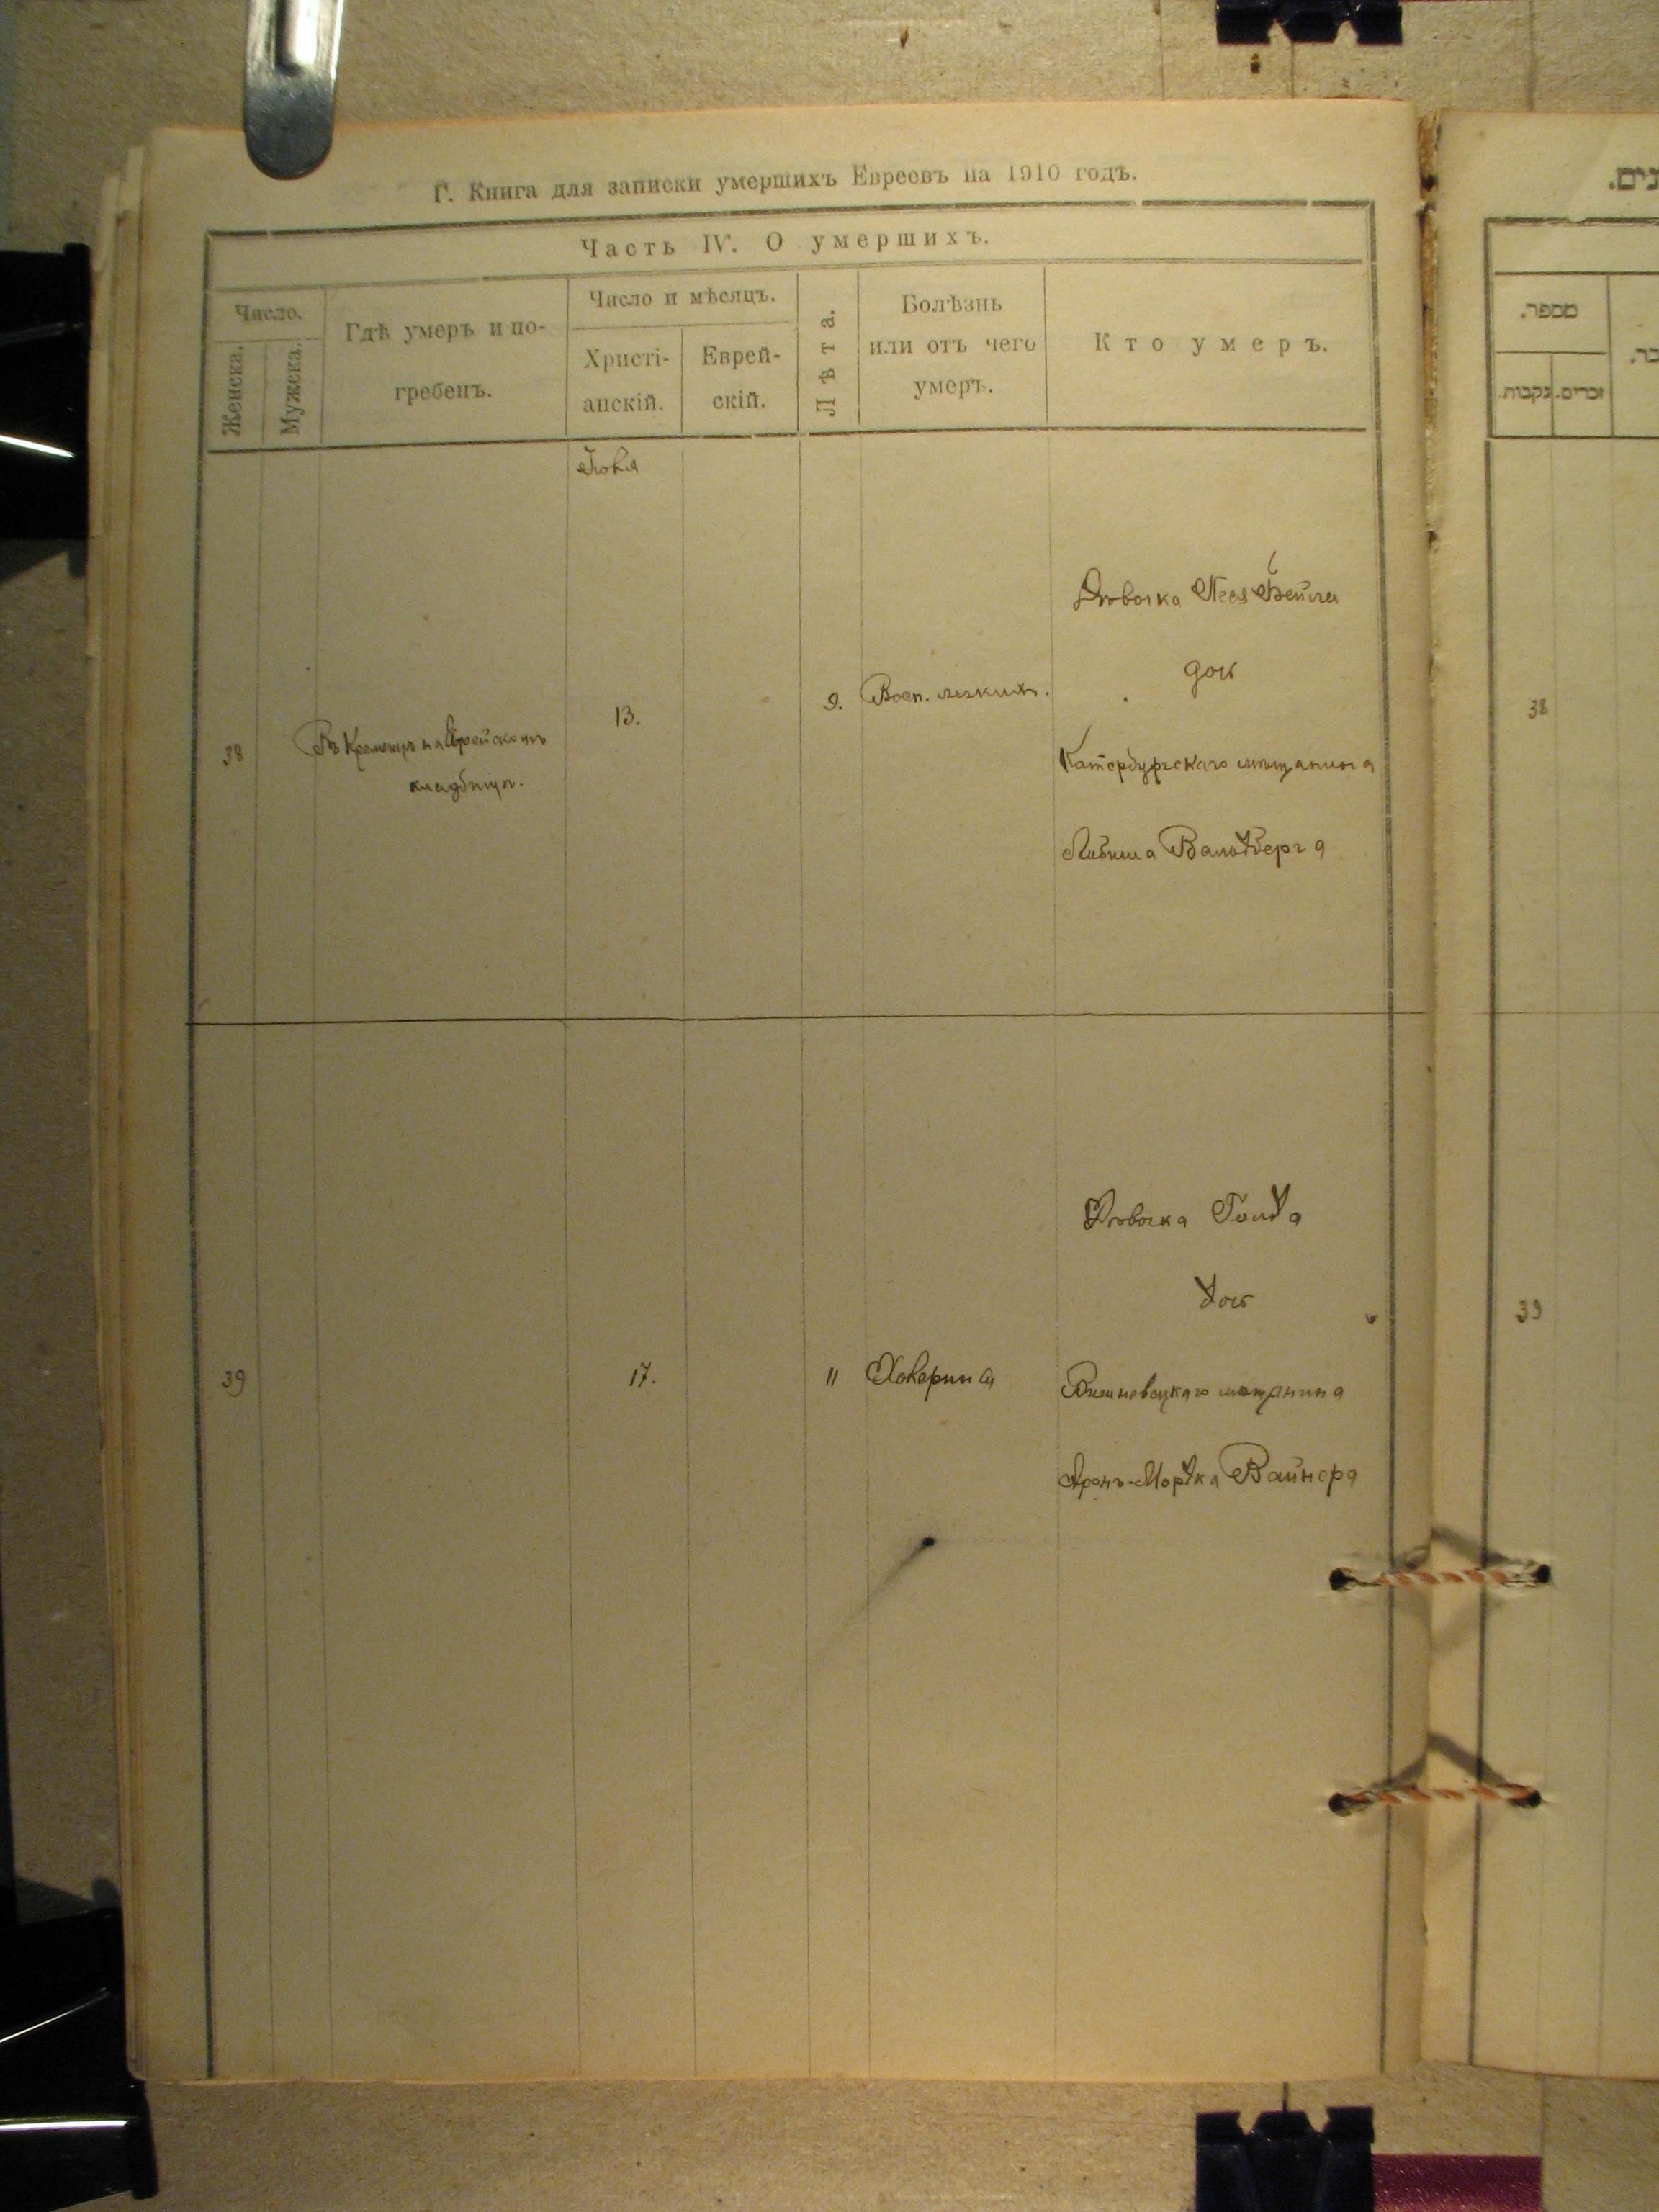 Г. Книга для записки умершихъ Евреевъ на 1910 годъ.
Часть IV. О умершихъ.
Число.
Женска.
Мужска.
Гдѣ умеръ и по-
гребенъ.
Число и мѣсяцъ.
Христі-
анскій.
Еврей-
скій.
Лѣта.
Болѣзнь
или отъ чего
умеръ.
Кто умеръ.
Іюля
38
Въ Кременцѣ на Еврейскомъ
кладбищѣ.
13.
9.
Восп. легкихъ.
Дѣвочка Песя Бейла
дочь
Катербургскаго мѣщанина
Лейбиша Вальдберга
39
17.
11
Холерина
Дѣвочка Голда
дочь
Вишневецкаго мѣщанина
Аронъ-Мордка Вайнера
מספר.
זכרים.
נקבות.
38
39